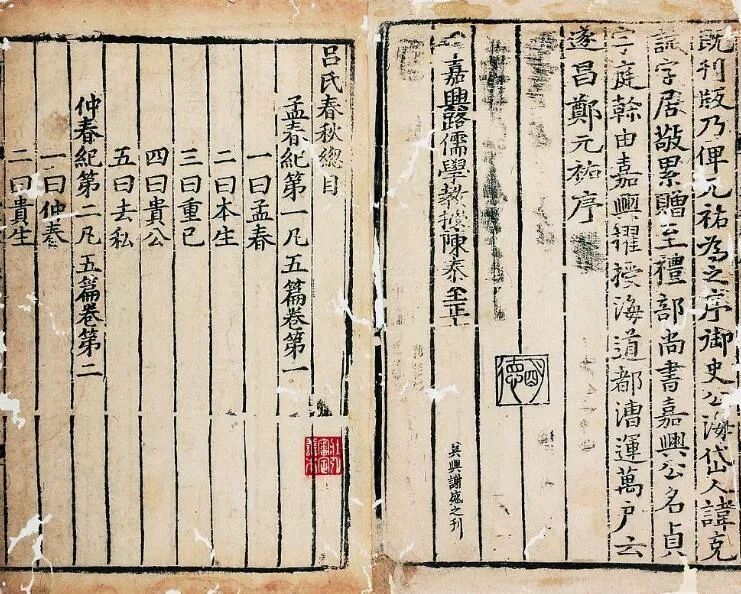 既刋版乃俾元祐為之序御史公海岱人諱克
誠字居敬累贈至禮部尚書嘉興公名貞
字庭幹由嘉興擢授海道都漕運萬戶云
遂昌鄭元祐序
嘉興路儒學教授陳泰至正
吳興謝盛之刊
呂氏春秋總目
孟春紀第一凡五篇卷第一
一曰孟春
二曰本生
三曰重己
四曰貴公
五曰去私
仲春紀第二凡五篇卷第二
一曰仲春
二曰貴生